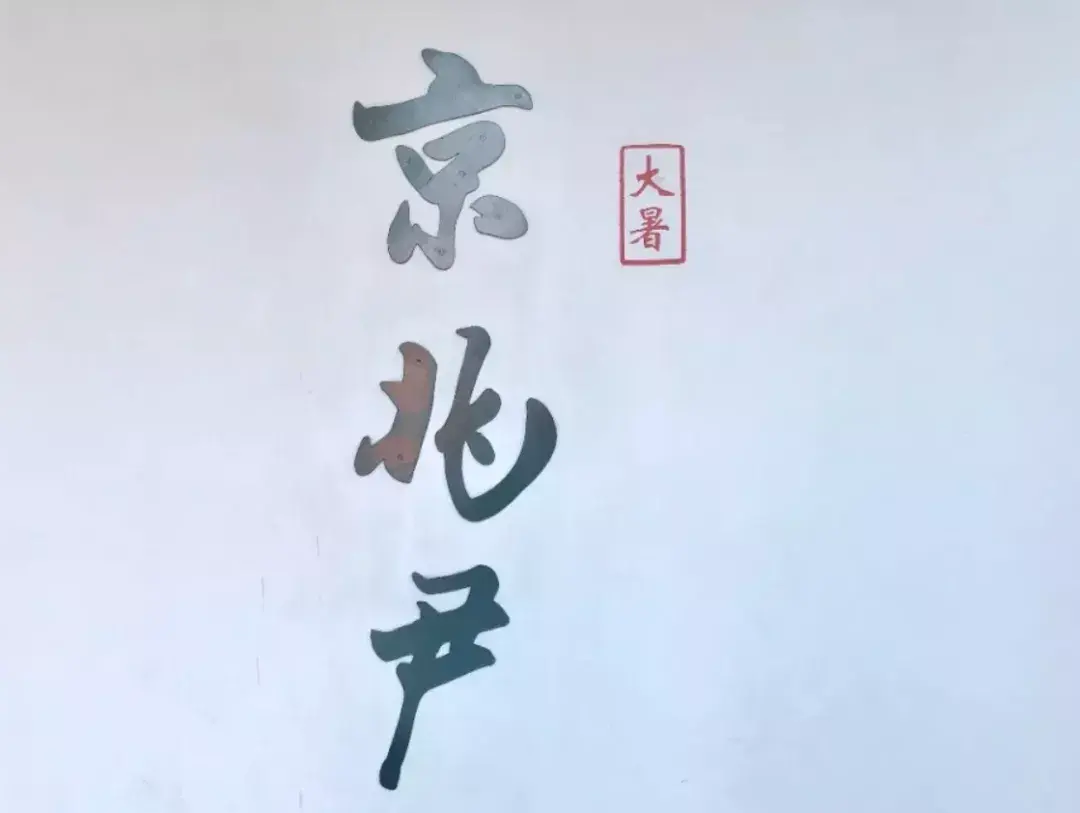 京兆尹
大暑